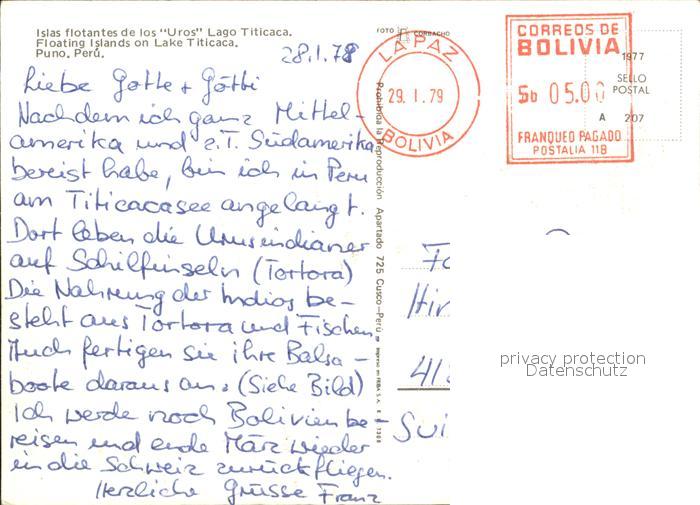 Islas flotantes de los "Uros" Lago Titicaca.
Floating Islands on Lake Titicaca.
Puno, Perú.
28.1.78
Liebe Gotte + Götti
Nachdem ich ganz Mittel-
amerika und z.T. Südamerika
bereist habe, bin ich in Peru
am Titicacasee angelangt.
Dort leben die Urusindianer
auf Schilfinseln (Tortora)
Die Nahrung der Indios be-
steht aus Tortora und Fischen
Auch fertigen sie ihre Balsa-
boote daraus an. (Siehe Bild)
Ich werde noch Bolivien be-
reisen und ende März wieder
in die Schweiz zurückfliegen.
Herzliche Grüsse Franz
FOTO CORBACHO
Prohibida la Reproducción Apartado 725 Cusco-Perú
LA PAZ
29. I. 79
BOLIVIA
CORREOS DE
BOLIVIA
$b 05.00
FRANQUEO PAGADO
POSTALIA 11B
1977
SELLO
POSTAL
A 207
Hir
41
Sui
privacy protection
Datenschutz